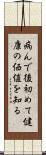 病んで後初めて健
康の価値を知る